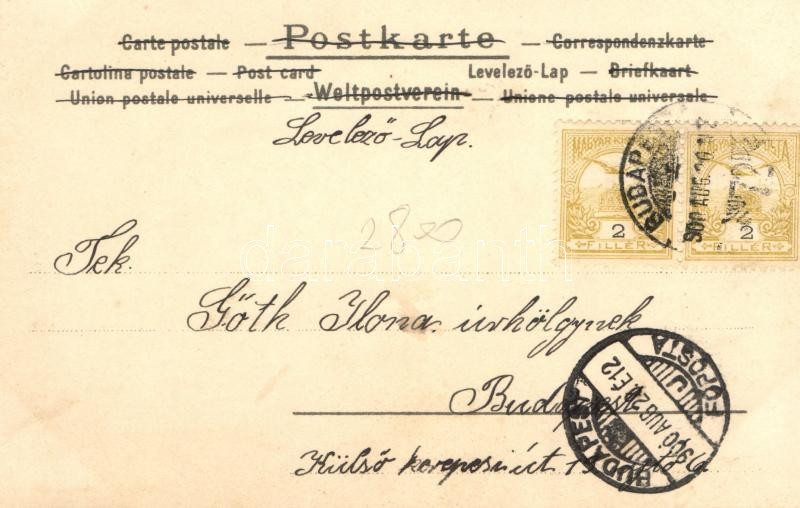 Carte postale — Postkarte — Correspondenzkarte
Cartolina postale — Post card Levelező-Lap — Briefkaart
Union postale universelle — Weltpostverein — Unione postale universale
Levelező-Lap.
MAGYAR KIR. POSTA
2
FILLÉR
2
FILLÉR
BUDAPEST
900 AUG.
2800
Tek.
Góth Ilona úrhölgynek
Budapest
Külső kerepesi út
BUDAPEST
900 AUG 26 E12
FŐPOSTA
darabanth